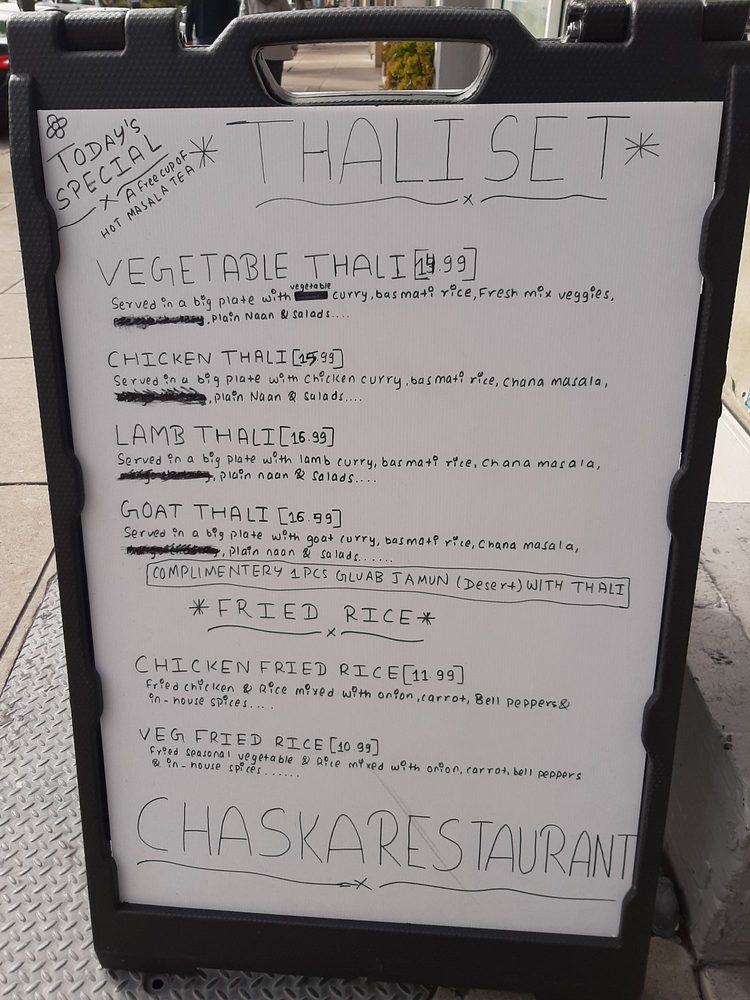 TODAY'S
SPECIAL
x A Free CUP OF
HOT MASALA TEA
* THALI SET *
x
VEGETABLE THALI [14.99]
vegetable
Served in a big plate with curry, basmati rice, Fresh mix veggies,
, Plain Naan & Salads....
CHICKEN THALI [15.99]
Served in a big plate with chicken curry, basmati rice, chana masala,
, Plain Naan & Salads....
LAMB THALI [16.99]
Served in a big plate with lamb curry, basmati rice, chana masala,
, plain naan & Salads....
GOAT THALI [16.99]
Served in a big plate with goat curry, basmati rice, Chana masala,
, Plain naan & Salads......
COMPLIMENTERY 1PCS GLUAB JAMUN (Desert) WITH THALI
* FRIED RICE *
x
CHICKEN FRIED RICE [11.99]
Fried chicken & Rice mixed with onion, carrot, Bell Peppers &
in-house spices....
VEG FRIED RICE [10.99]
Fried seasonal vegetable & Rice mixed with onion, carrot, bell peppers
& in-house spices......
CHASKA RESTAURANT
x